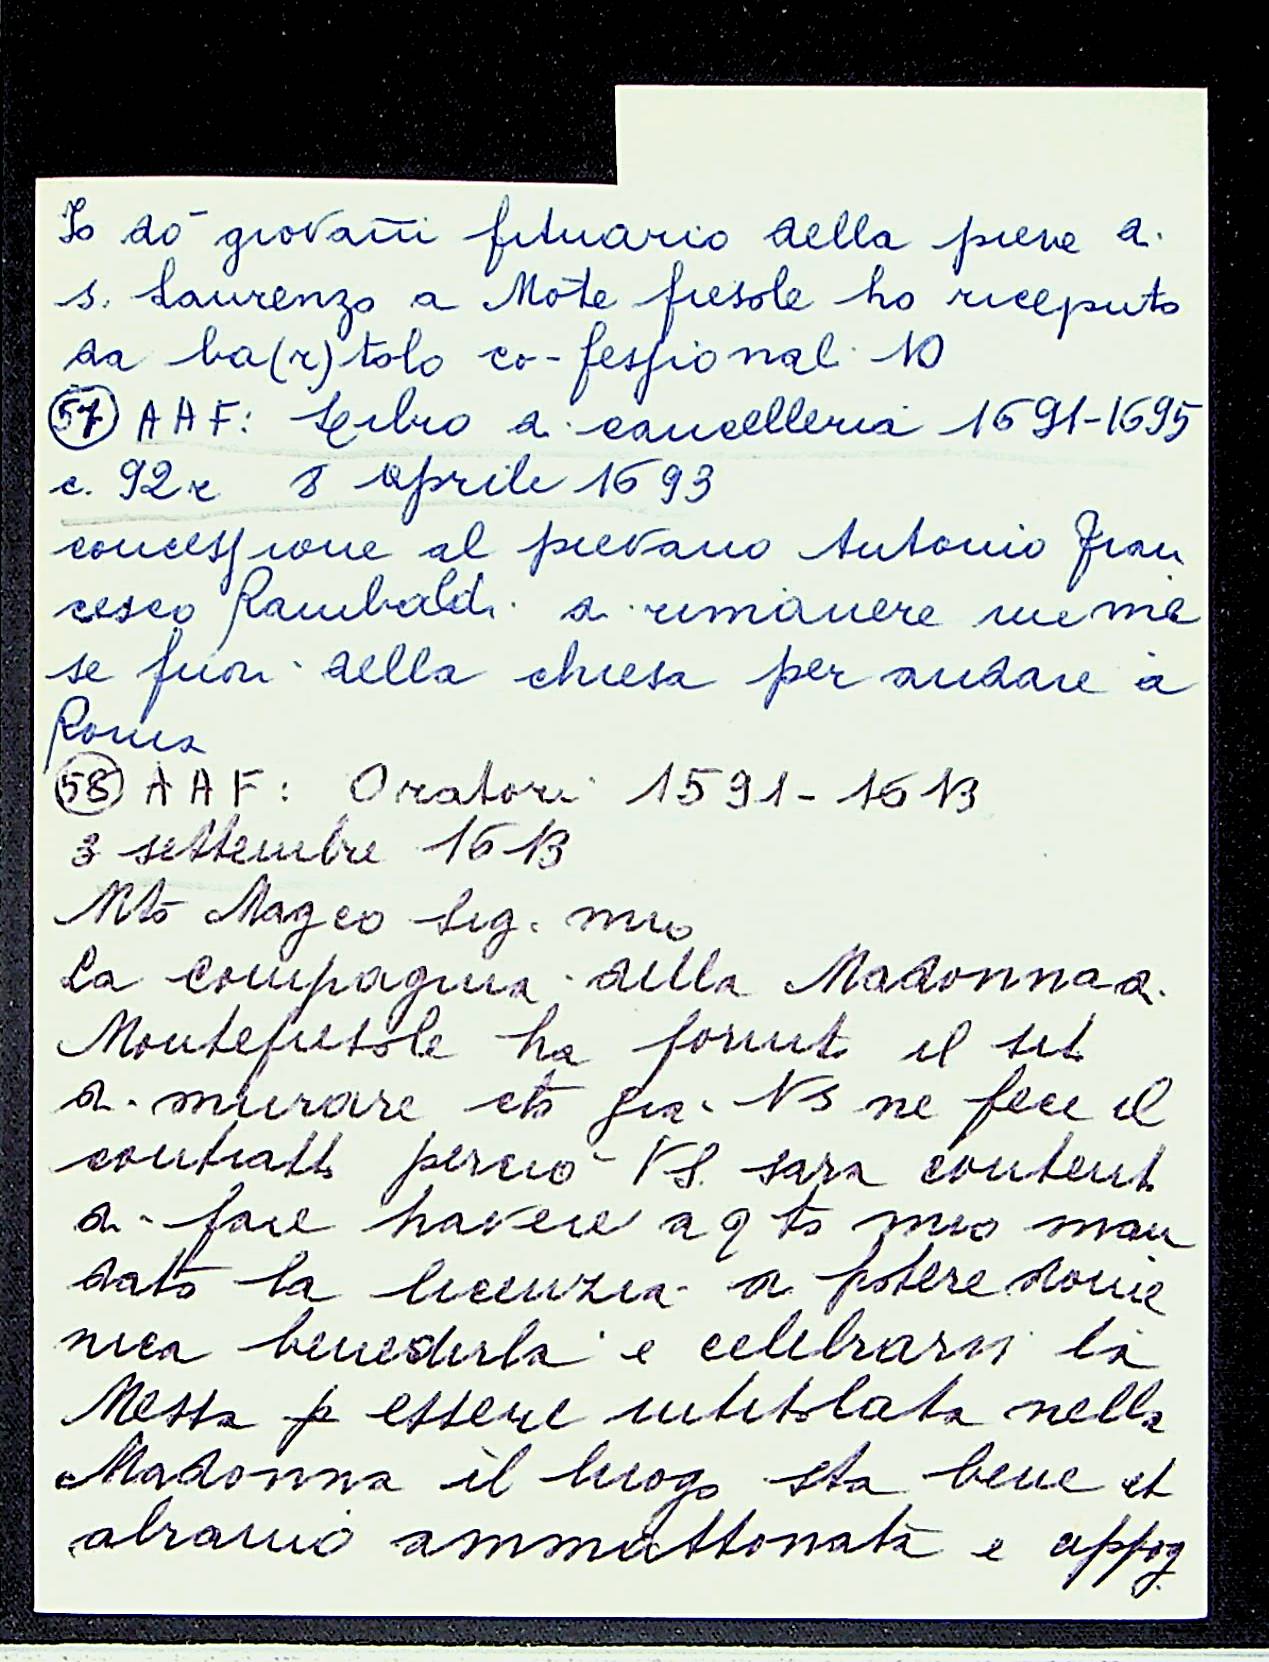 Io dō giovāni fituario della pieve di
S. Laurenzo a Mōte fiesole ho riceputo
da ba(r)tolo co-fessional. 10
(57) AAF: Libro di cancelleria 1691-1695
c. 92r 8 aprile 1693
concessione al pievano Antonio Fran
cesco Rambaldi di rimanere un me
se fuori della chiesa per andare a
Roma
(58) AAF: Oratori 1591-1613
3 settembre 1613
Mto Magco Sig. mio
La compagnia della Madonna di
Montefiesole ha fornito il sito
di murare cto gia VS ne fece il
contratto perciò VS. sara contento
di fare havere a qto mio man
dato la licenzia di potere dome
nica benedirla e celebrarsi la
Messa p essere intitolata nella
Madonna il luogo sta bene et
abramo ammattonata e appog